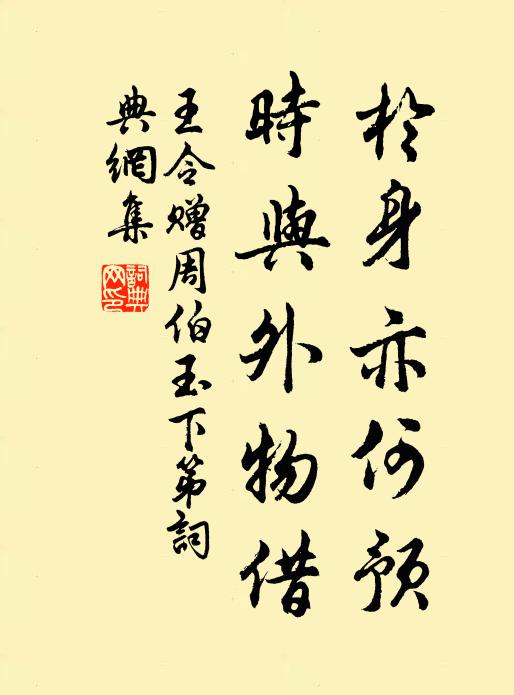 於身亦何預
時與外物借
王令贈周伯玉下第詞
典網集
詞典網印